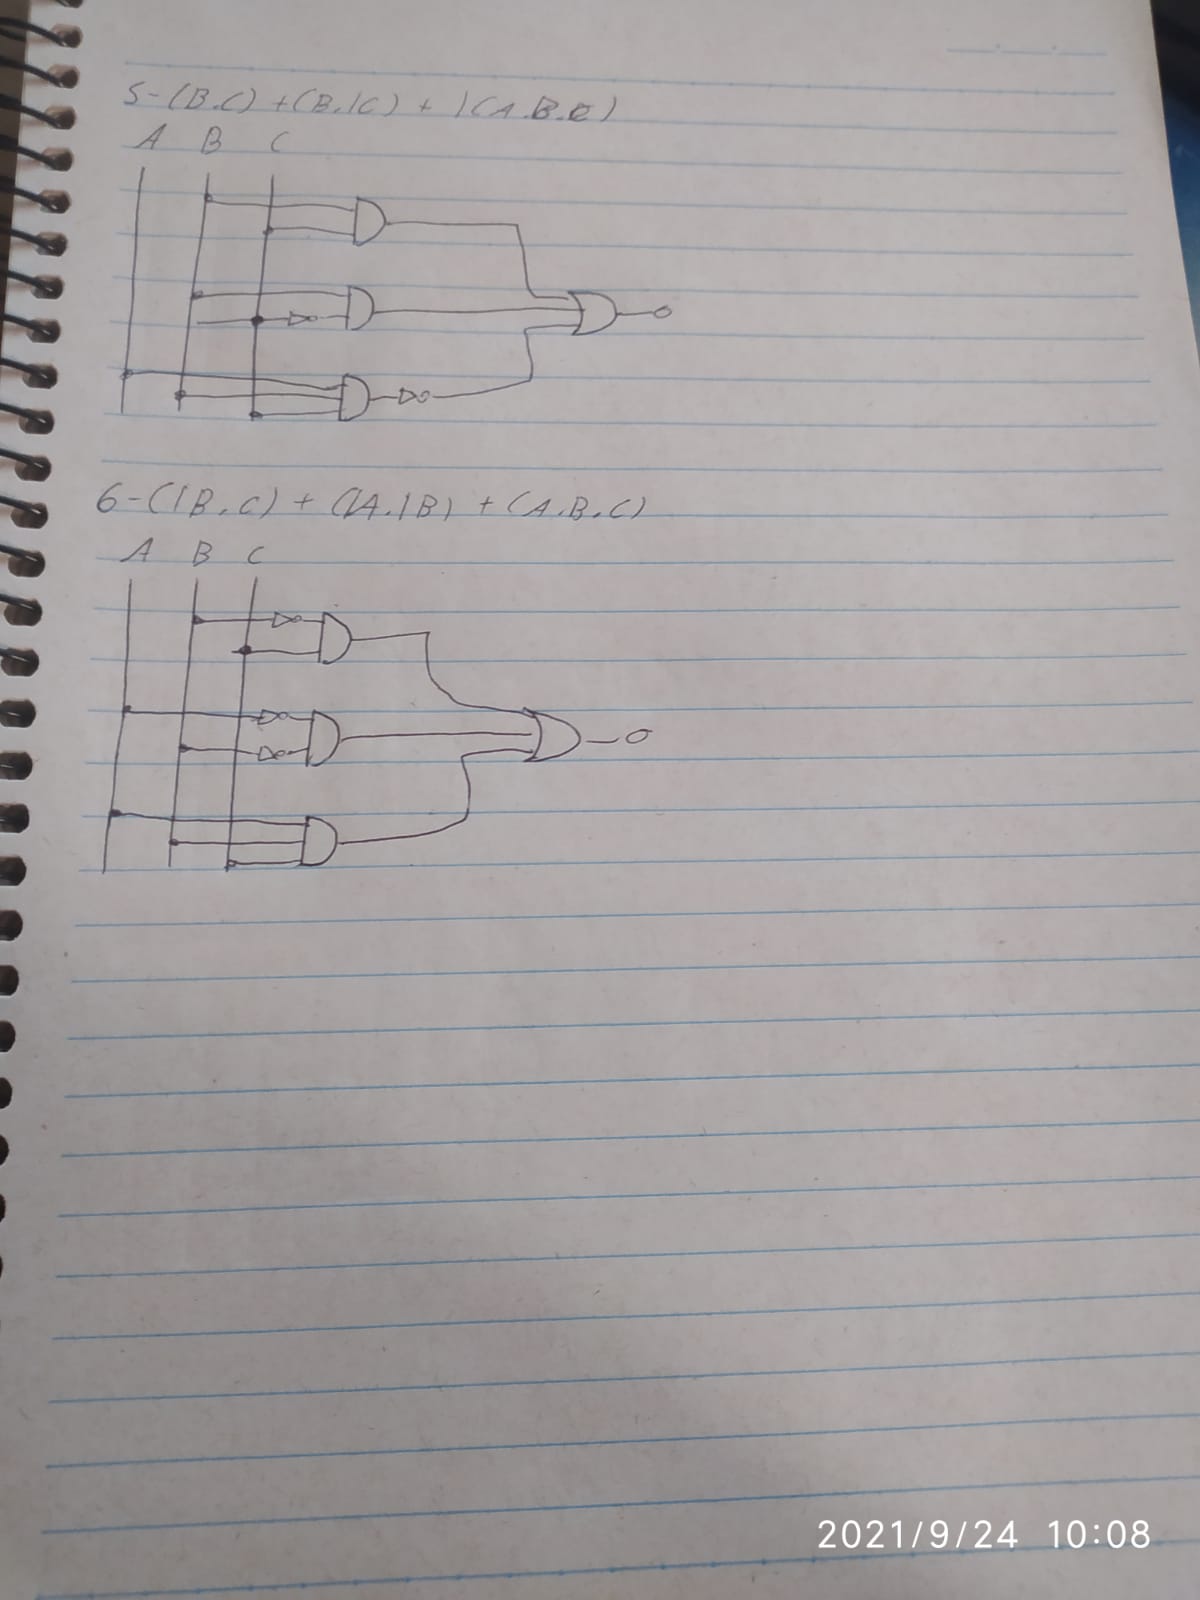 5-(B.C) + (B./C) + /(A.B.C)
A B C
6-(/B.C) + (/A./B) + (A.B.C)
A B C
2021/9/24 10:08